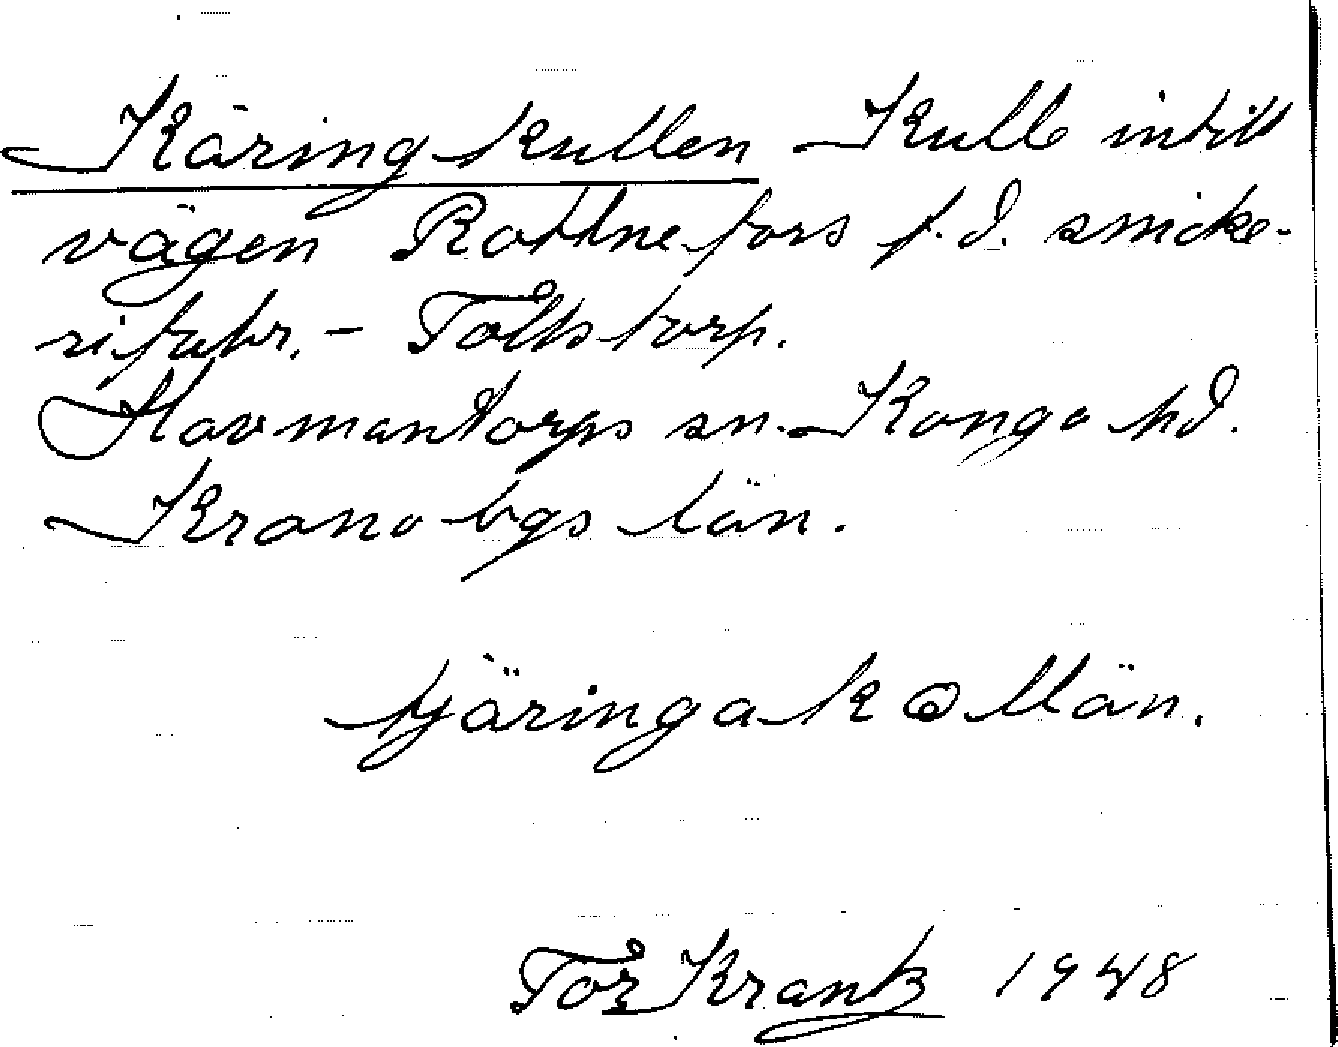 Käringkullen Kulle intill
vägen Rottnefors f.d. snicke-
rifabr. - Tollstorp.
Hovmantorps sn. Konga hd.
Kronobgs län.
tjäringakɷllän.
Tor Krantz 1948